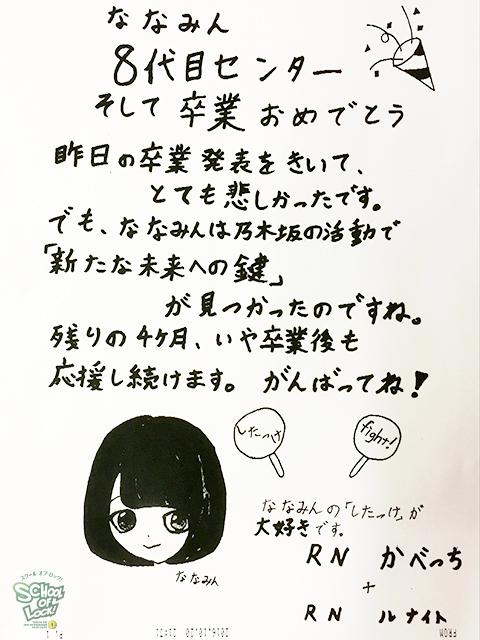 ななみん
8代目センター
そして 卒業 おめでとう
昨日の卒業発表をきいて、
とても悲しかったです。
でも、ななみんは乃木坂の活動で
「新たな未来への鍵」
が見つかったのですね。
残りの4ヶ月、いや卒業後も
応援し続けます。 がんばってね!
したっけ
fight!
ななみんの「したっけ」が
大好きです。
ななみん
RN かべっち
+
RN ルナイト
スクール オブ ロック!
SCHOOL
OF
LOCK!
FROM